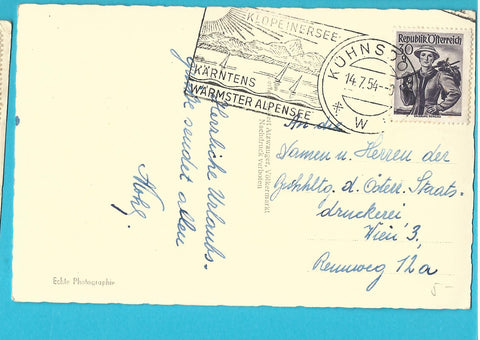 KLOPEINERSEE
KÄRNTENS
WÄRMSTER ALPENSEE
KÜHNSD
14.7.54
* W
Republik Österreich
30
g
Herrliche Urlaubs-
grüße sendet allen
Nachdruck verboten
An die
Damen u. Herren der
Bchhltg. d. Österr. Staats-
druckerei
Wien 3,
Rennweg 12a
Echte Photographie
5-